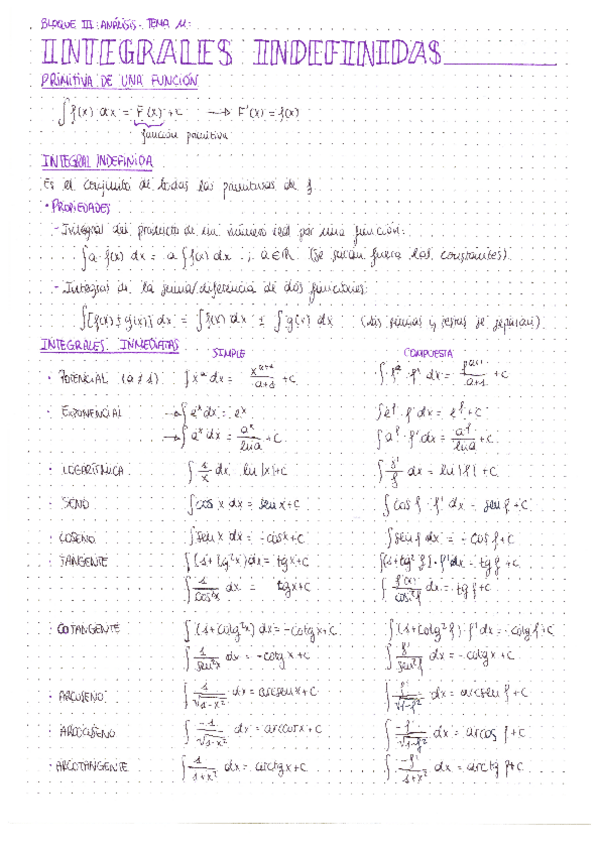 BLOQUE III: ANÁLISIS - TEMA 11:
INTEGRALES INDEFINIDAS
PRIMITIVA DE UNA FUNCIÓN
∫f(x) dx = F(x) + C → F'(x) = f(x)
función primitiva
INTEGRAL INDEFINIDA
Es el conjunto de todas las primitivas de f.
• PROPIEDADES
- Integral del producto de un número real por una función:
∫a·f(x) dx = a∫f(x) dx ; a∈ℝ (se sacan fuera las constantes)
- Integral de la suma/diferencia de dos funciones:
∫[f(x)±g(x)] dx = ∫f(x) dx ± ∫g(x) dx (las sumas y restas se separan)
INTEGRALES INMEDIATAS SIMPLE COMPUESTA
• POTENCIAL (a≠1) ∫x^a dx = x^(a+1)/(a+1) + C ∫f^a · f' dx = f^(a+1)/(a+1) + C
• EXPONENCIAL → ∫e^x dx = e^x ∫e^f · f' dx = e^f + C
→ ∫a^x dx = a^x/ln a + C ∫a^f · f' dx = a^f/ln a + C
• LOGARÍTMICA ∫1/x dx ln|x|+C ∫f'/f dx = ln|f| + C
• SENO ∫cos x dx = sen x + C ∫cos f · f' dx = sen f + C
• COSENO ∫sen x dx = -cos x + C ∫sen f dx = -cos f + C
• TANGENTE ∫(1+tg²x) dx = tg x + C ∫(1+tg²f)·f' dx = tg f + C
∫1/cos²x dx = tg x + C ∫f'(x)/cos²f dx = tg f + C
• COTANGENTE ∫(1+cotg²x) dx = -cotg x + C ∫(1+cotg²f)·f' dx = -cotg f + C
∫1/sen²x dx = -cotg x + C ∫f'/sen²f dx = -cotg x + C
• ARCOSENO ∫1/√(1-x²) dx = arcsen x + C ∫f'/√(1-f²) dx = arcsen f + C
• ARCOCOSENO ∫-1/√(1-x²) dx = arccos x + C ∫-f'/√(1-f²) dx = arcos f + C
• ARCOTANGENTE ∫1/(1+x²) dx = arctg x + C ∫-f'/(1+x²) dx = arctg f + C